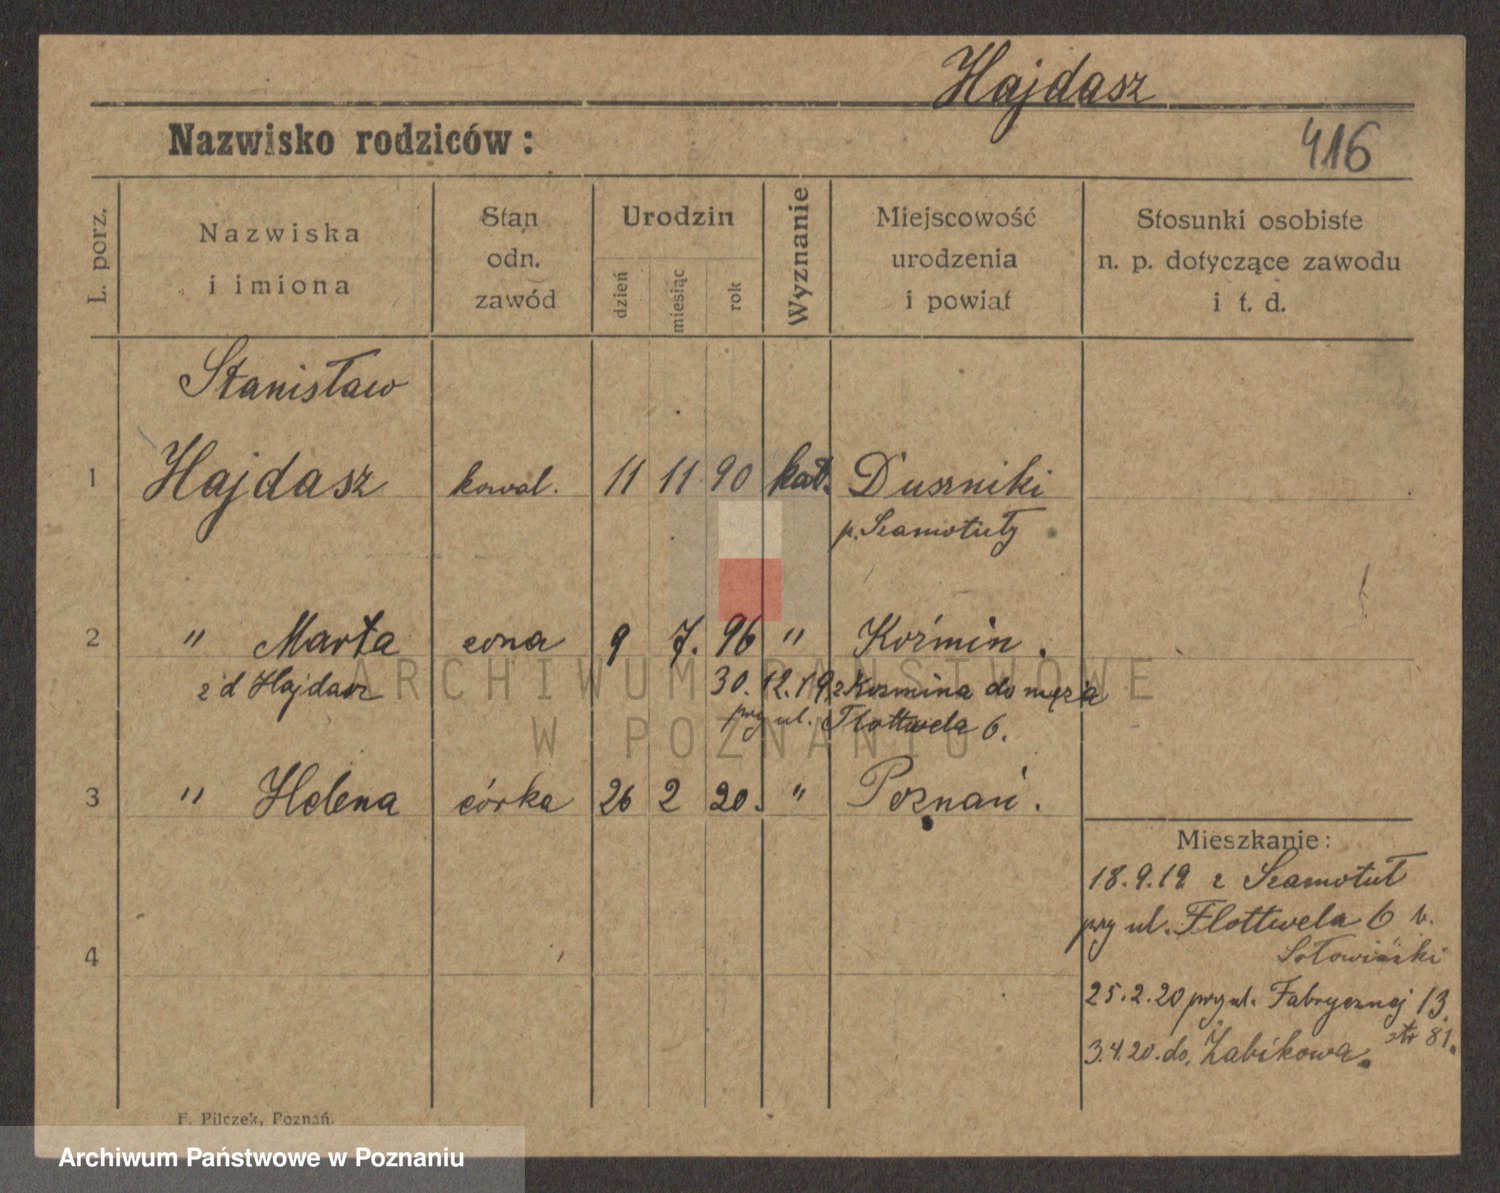 Hajdasz
Nazwisko rodziców:
416
L. porz.
Nazwiska
i imiona
Stan
odn.
zawód
Urodzin
dzień
miesiąc
rok
Wyznanie
Miejscowość
urodzenia
i powiat
Stosunki osobiste
n. p. dotyczące zawodu
i t. d.
Stanisław
1 Hajdasz kowal. 11 11 90 kat. Duszniki
p. Szamotuły
2 " Marta zona 9 7. 96 " Koźmin.
z d Hajdasz 30.12.19 z Kozmina do męża
przy ul. Flottwela 6.
3 " Helena córka 26 2 20. " Poznań.
Mieszkanie:
18.9.19 z Szamotuł
przy ul. Flottwela 6 b.
4
25.2.20 przy ul. Fabrycznej 13
str 81.
3.4.20. do Żabikowa.
F. Pilczek, Poznań.
ARCHIWUM PAŃSTWOWE
W POZNANIU
Archiwum Państwowe w Poznaniu